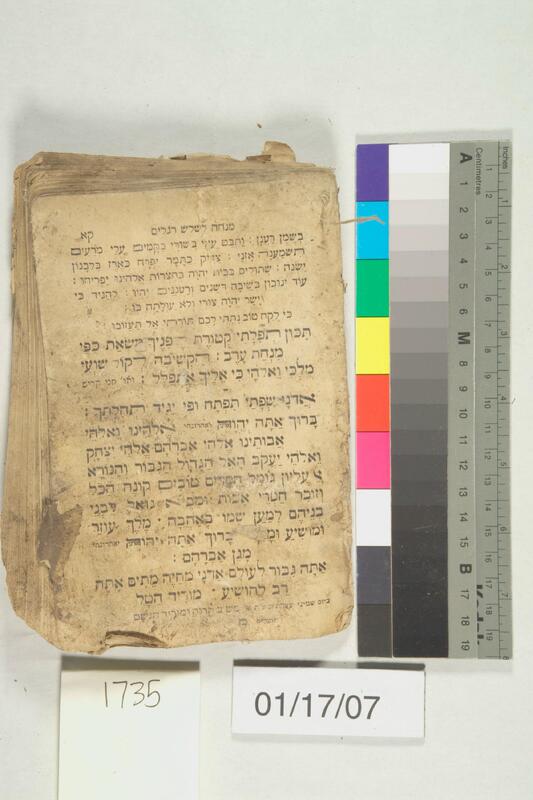 קא מנחה לשלש רגלים
בשמן רענן : ותבט עיני בשורי בקמים עלי מרעים
תשמענה אזני : צדיק כתמר יפרח כארז בלבנון
ישגה : שתולים בבית יהוה בחצרות אלהינו יפריחו :
עוד ינובון בשיבה דשנים ורעננים יהיו : להגיד כי
ישר יהוה צורי ולא עולתה בו :
כי לקח טוב נתתי לכם תורתי אל תעזובו :
תכון תפלתי קטורת פניך משאת כפי
מנחת ערב : הקשיבה לקול שועי
מלכי ואלהי כי אליך אתפלל :
אדני שפתי תפתח ופי יגיד תהלתך :
ברוך אתה יהוה אלהינו ואלהי
אבותינו אלהי אברהם אלהי יצחק
ואלהי יעקב האל הגדול הגבור והנורא
אל עליון גומל חסדים טובים קונה הכל
וזוכר חסדי אבות ומביא גואל לבני
בניהם למען שמו באהבה : מלך עוזר
ומושיע ומגן ברוך אתה יהוה
מגן אברהם :
אתה גבור לעולם אדני מחיה מתים אתה
רב להושיע : מוריד הטל
ביום שמיני
1735
01/17/07
Centimetres
Inches
A 1 2 3 4 5 6 M 8 9 10 11 12 13 14 15 B 17 18 19